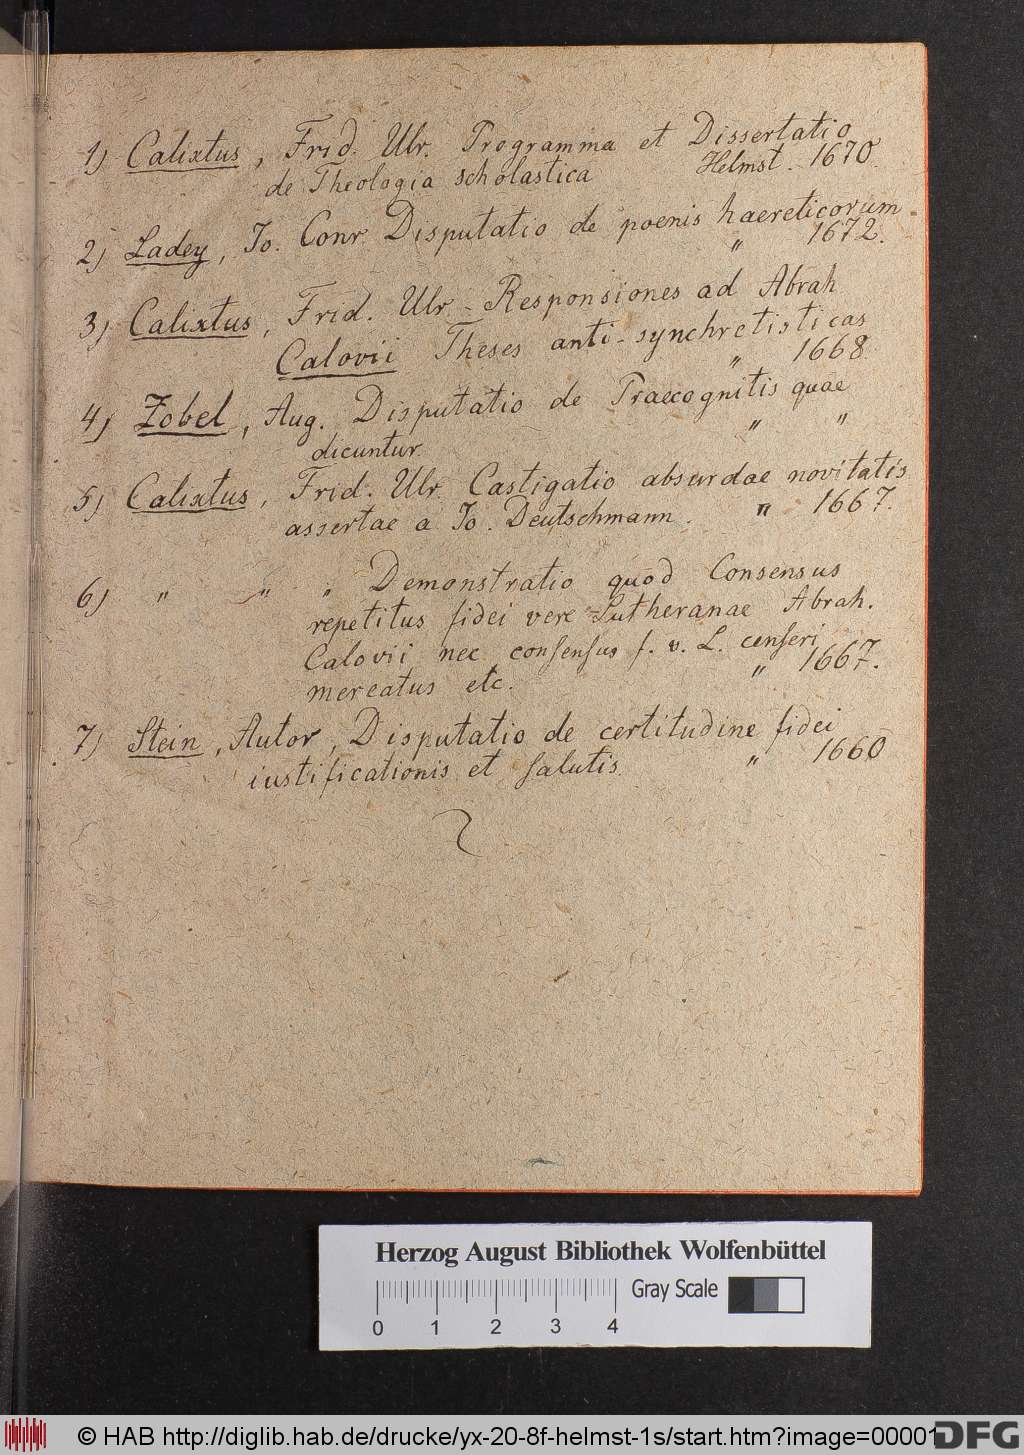 1) Calixtus, Frid. Ulr. Programma et Dissertatio
de Theologia scholastica Helmst. 1670.
2) Ladey, Io. Conr. Disputatio de poenis haereticorum
" 1672.
3) Calixtus, Frid. Ulr. Responsiones ad Abrah
Calovii Theses anti-synchretisticas
" 1668.
4) Zobel, Aug. Disputatio de Praecognitis quae
dicuntur. " "
5) Calixtus, Frid. Ulr. Castigatio absurdae novitatis
assertae a Io. Deutschmann. " 1667.
6) " " " Demonstratio quod Consensus
repetitus fidei vere Lutheranae Abrah.
Calovii nec consensus f. v. L. censeri
mereatus etc. " 1667.
7) Stein, Autor, Disputatio de certitudine fidei
iustificationis et salutis. " 1660
Herzog August Bibliothek Wolfenbüttel
Gray Scale
0 1 2 3 4
© HAB http://diglib.hab.de/drucke/yx-20-8f-helmst-1s/start.htm?image=00001
DFG